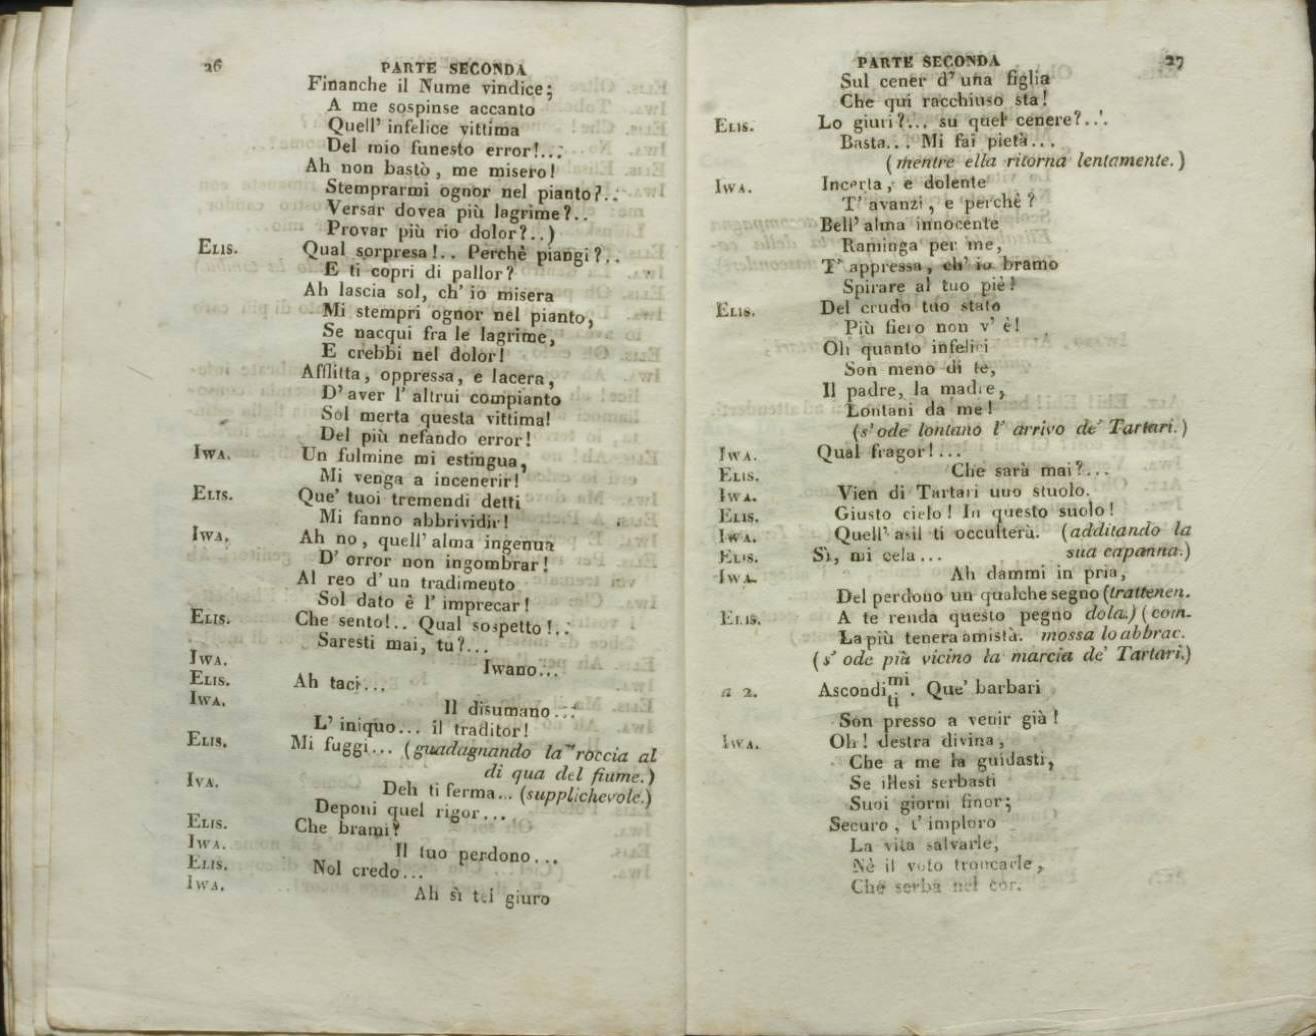 26
PARTE SECONDA
Finanche il Nume vindice;
A me sospinse accanto
Quell' infelice vittima
Del mio funesto error!...
Ah non bastò, me misero!
Stemprarmi ognor nel pianto?..
Versar dovea più lagrime?..
Provar più rio dolor?..)
ELIS. Qual sorpresa!.. Perchè piangi?..
E ti copri di pallor?
Ah lascia sol, ch' io misera
Mi stempri ognor nel pianto,
Se nacqui fra le lagrime,
E crebbi nel dolor!
Afflitta, oppressa, e lacera,
D' aver l' altrui compianto
Sol merta questa vittima!
Del più nefando error!
IWA. Un fulmine mi estingua,
Mi venga a incenerir!
ELIS. Que' tuoi tremendi detti
Mi fanno abbrividir!
IWA. Ah no, quell' alma ingenua
D' orror non ingombrar!
Al reo d' un tradimento
Sol dato è l' imprecar!
ELIS. Che sento!.. Qual sospetto!..
Saresti mai, tu?...
IWA. Iwano...
ELIS. Ah taci...
IWA. Il disumano...
L' iniquo... il traditor!
ELIS. Mi fuggi... (guadagnando la roccia al
di qua del fiume.)
IVA. Deh ti ferma... (supplichevole.)
Deponi quel rigor...
ELIS. Che brami?
IWA. Il tuo perdono...
ELIS. Nol credo...
IWA. Ah sì tel giuro
PARTE SECONDA
27
Sul cener d' una figlia
Che qui racchiuso sta!
ELIS. Lo giuri?... su quel cenere?...
Basta... Mi fai pietà...
(mentre ella ritorna lentamente.)
IWA. Incerta, e dolente
T' avanzi, e perchè?
Bell' alma innocente
Raminga per me,
T' appressa, ch' io bramo
Spirare al tuo piè!
ELIS. Del crudo tuo stato
Più fiero non v' è!
Oh quanto infelici
Son meno di te,
Il padre, la madre,
Lontani da me!
(s' ode lontano l' arrivo de' Tartari.)
IWA. Qual fragor!...
ELIS. Che sarà mai?...
IWA. Vien di Tartari uno stuolo.
ELIS. Giusto cielo! In questo suolo!
IWA. Quell' asil ti occulterà. (additando la
ELIS. Sì, mi cela... sua capanna.)
IWA. Ah dammi in pria,
Del perdono un qualche segno (trattenen.
ELIS. A te renda questo pegno dola.) (com-
La più tenera amistà. mossa lo abbrac.
(s' ode più vicino la marcia de' Tartari.)
a 2. Ascondi mi ti . Que' barbari
Son presso a venir già!
IWA. Oh! destra divina,
Che a me la guidasti,
Se illesi serbasti
Suoi giorni finor;
Securo, t' imploro
La vita salvarle,
Nè il voto troncarle,
Che serba nel cor.